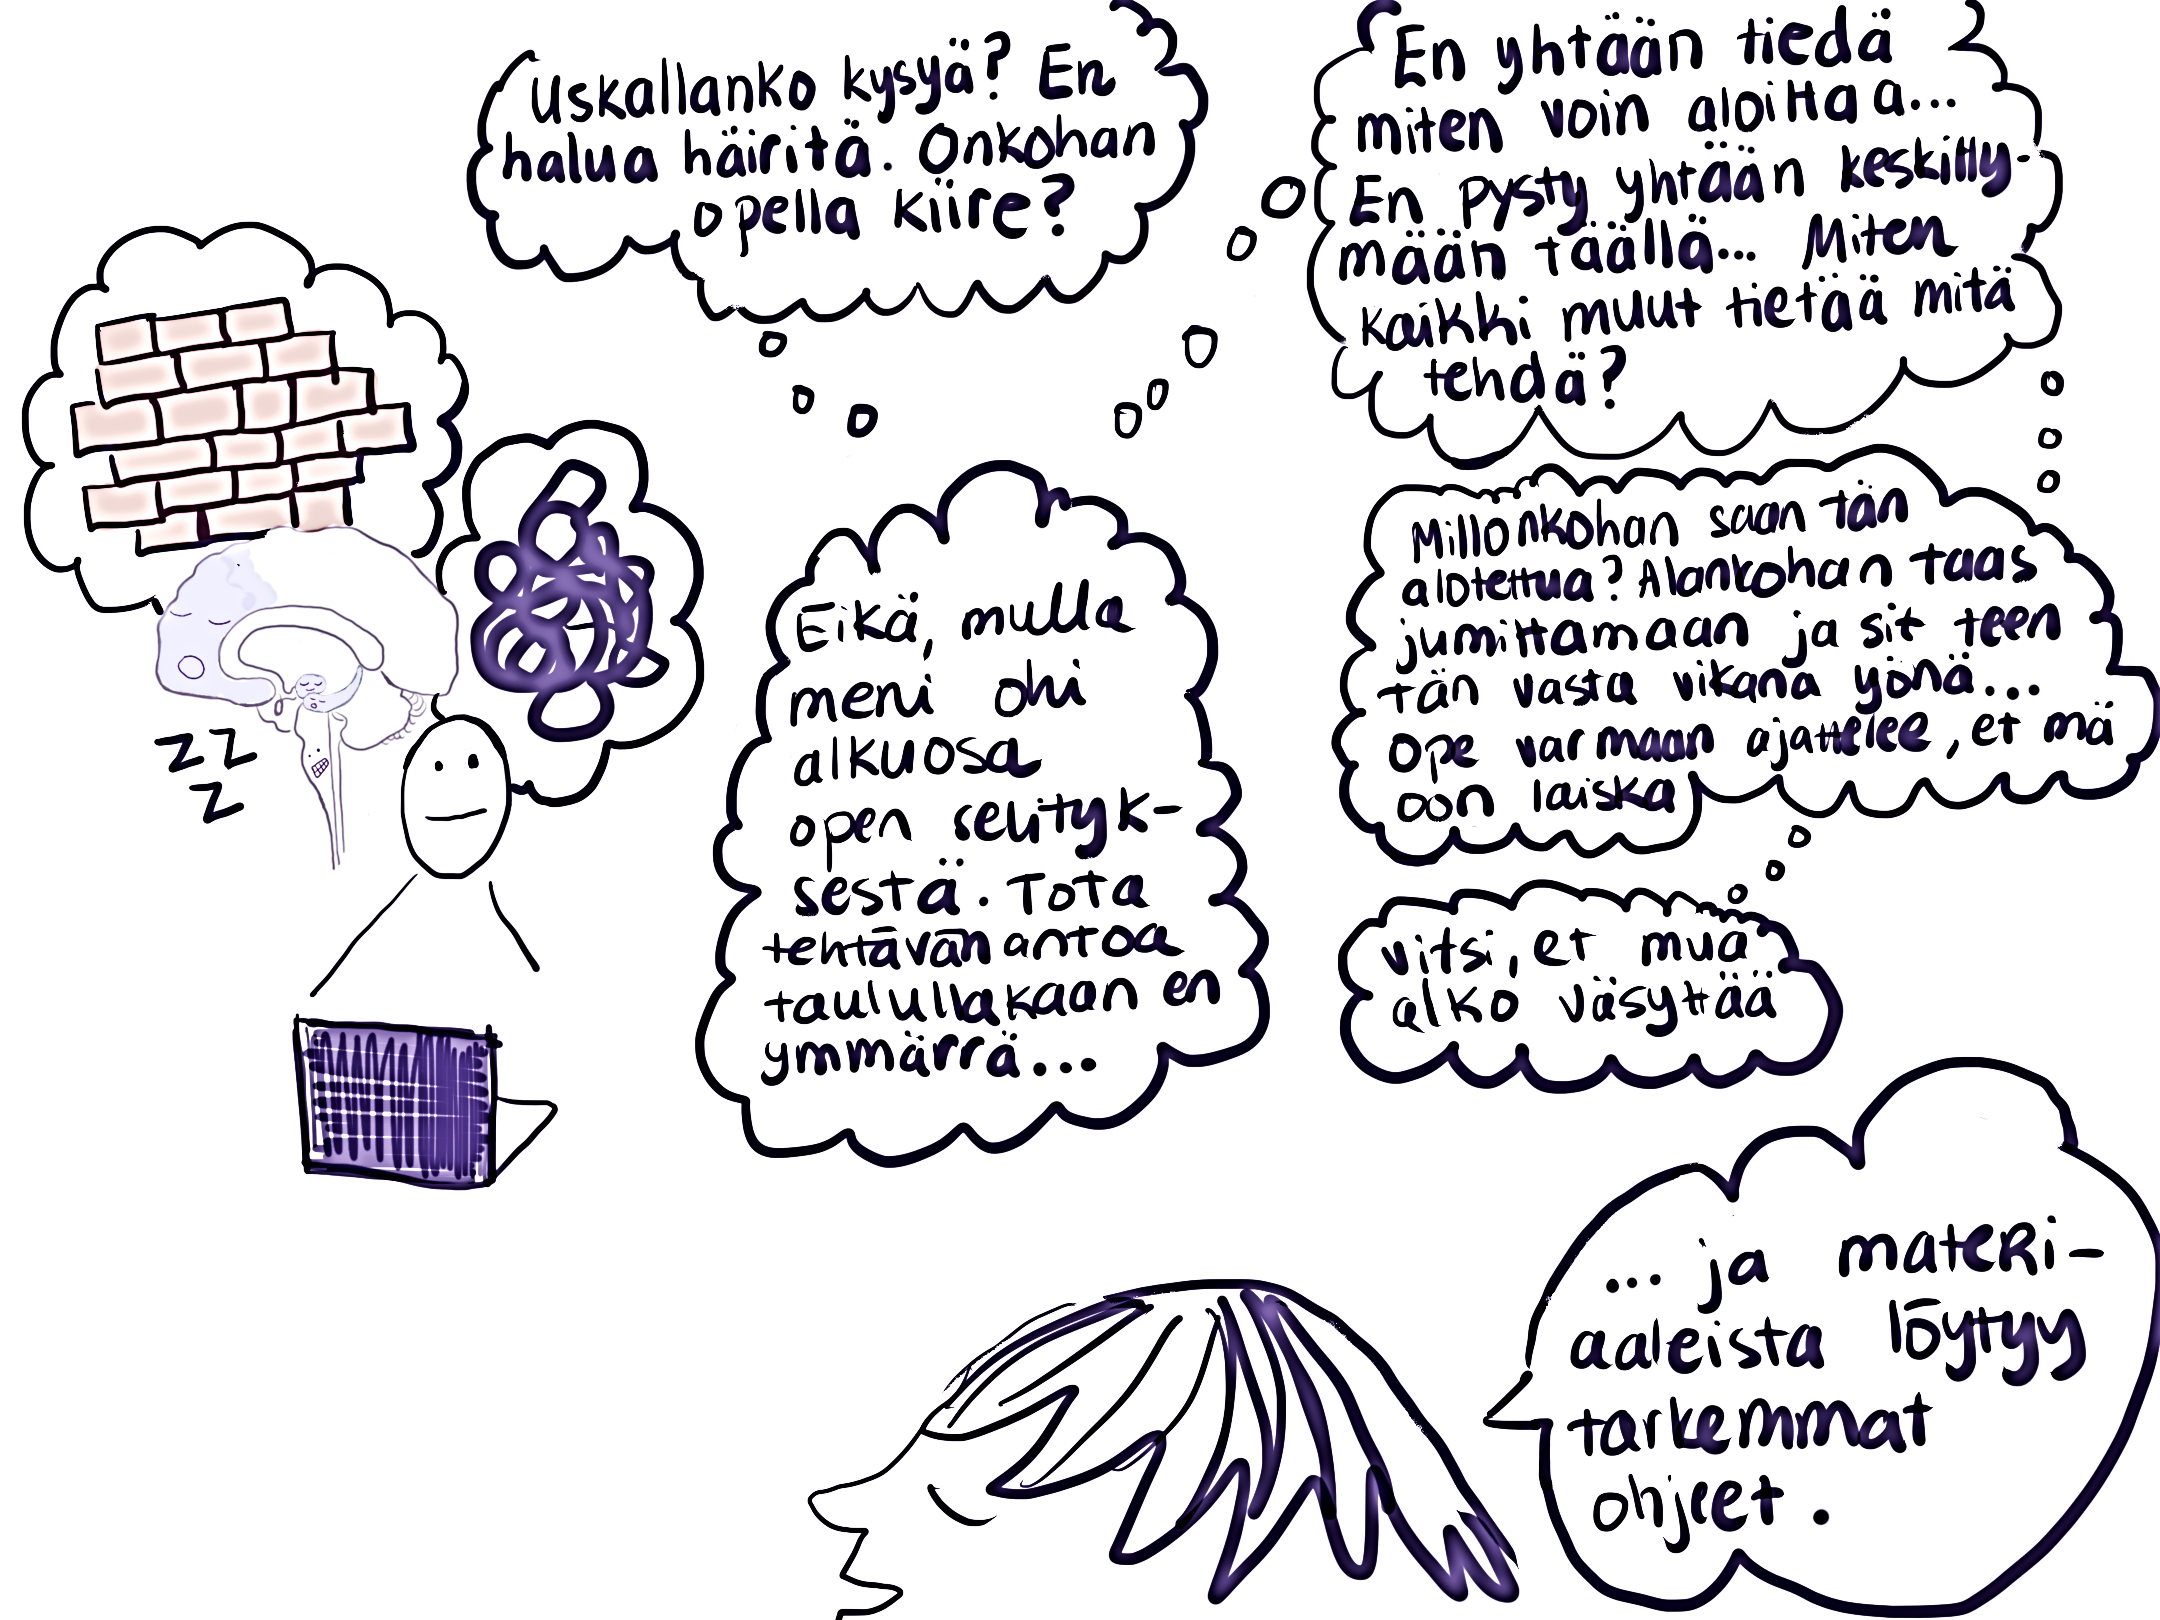 Uskallanko kysyä? En
halua häiritä. Onkohan
opella kiire?
En yhtään tiedä
miten voin aloittaa...
En pysty yhtään keskitty-
mään täällä... Miten
kaikki muut tietää mitä
tehdä?
Eikä, mulla
meni ohi
alkuosa
open selityk-
sestä. Tota
tehtävänantoa
taulullakaan en
ymmärrä...
Millonkohan saan tän
alotettua? Alankohan taas
jumittamaan ja sit teen
tän vasta vikana yönä...
Ope varmaan ajattelee, et mä
oon laiska
Vitsi, et mua
alko väsyttää
ZZ
Z
... ja materi-
aaleista löytyy
tarkemmat
ohjeet.